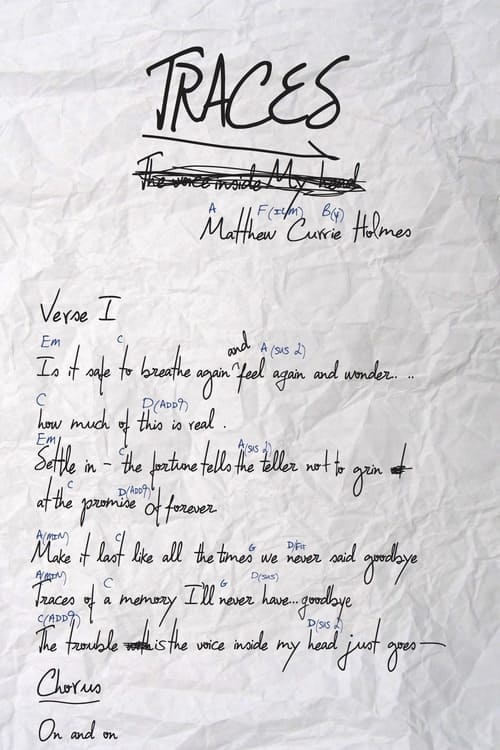 TRACES
The voice inside My head
A F(ILM) B(Y)
Matthew Currie Holmes
Verse I
Em C and A(sus 2)
Is it safe to breathe again ^ feel again and wonder.. ..
C D(ADD9)
how much of this is real .
Em C A(sus 2)
Settle in - the fortune tells the teller not to grin
C D(ADD9)
at the promise of forever
A(MIN) C G D/F#
Make it last like all the times we never said goodbye
A(MIN) C G D(sus)
Traces of a memory I'll never have... goodbye
C(ADD9) D(SUS 2)
The trouble is the voice inside my head just goes—
Chorus
On and on